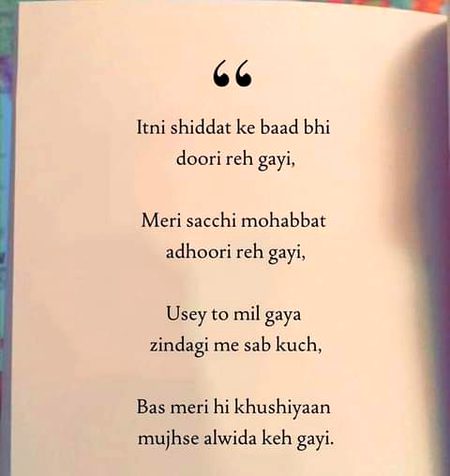 “
Itni shiddat ke baad bhi
doori reh gayi,
Meri sacchi mohabbat
adhoori reh gayi,
Usey to mil gaya
zindagi me sab kuch,
Bas meri hi khushiyaan
mujhse alwida keh gayi.